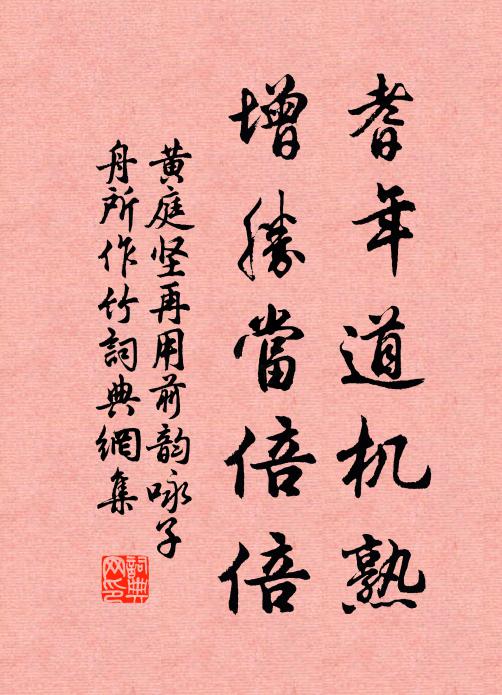 耆年道机熟
增勝當倍倍
黄庭坚再用前韵咏子
舟所作竹詞典網集
詞典
网印